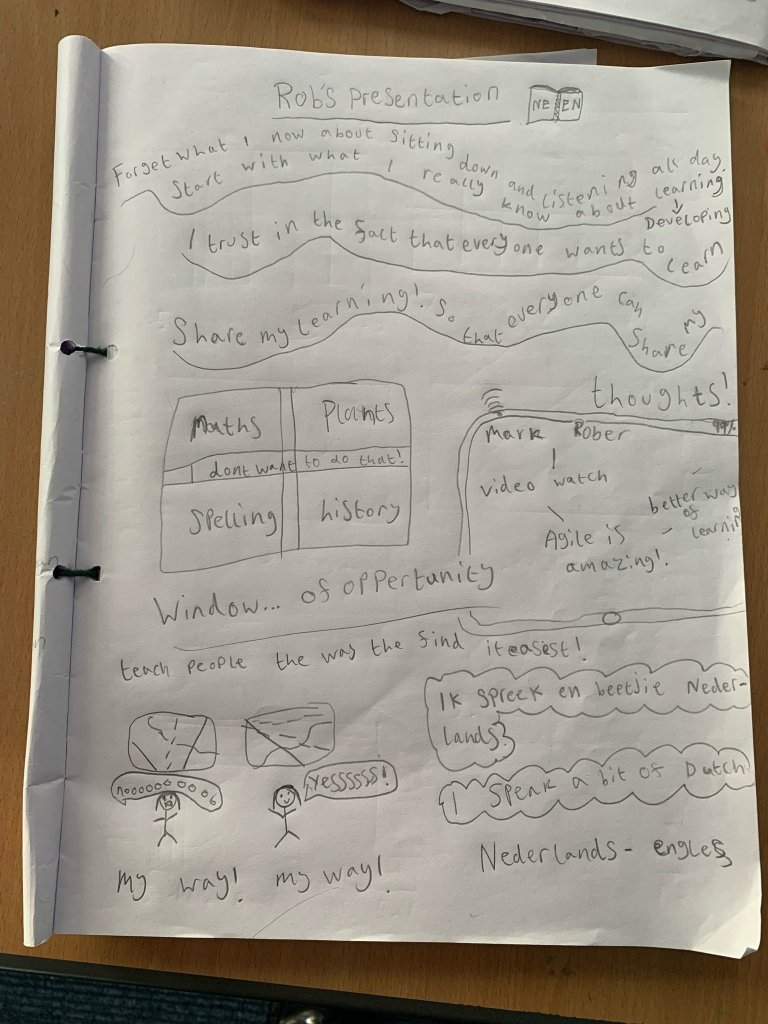 Rob's presentation
NE EN
Forget what I now about sitting down and listening all day.
Start with what I really know about learning
Developing
I trust in the fact that everyone wants to learn
Share my learning! So that everyone can share my
thoughts!
Maths
Plants
I dont want to do that!
Spelling
history
Window... of oppertunity
Mark Rober
99%
video watch
Agile is
amazing!
better way
of
learnin
teach people the was the find it easest!
noooooooooo
Yessssss!
my way! my way!
Ik spreek en beetjie Neder-
lands
I speak a bit of Dutch
Nederlands - engles